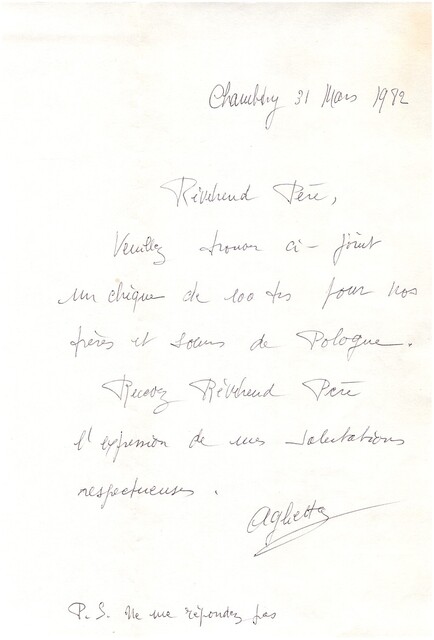 Chambéry 31 Mars 1982
Révérend Père,
Veuillez trouver ci-joint
un chèque de 100 frs pour nos
frères et soeurs de Pologne.
Recevez Révérend Père
l'expression de mes salutations
respectueuses.
Aglietta
P.S. Ne me répondez pas